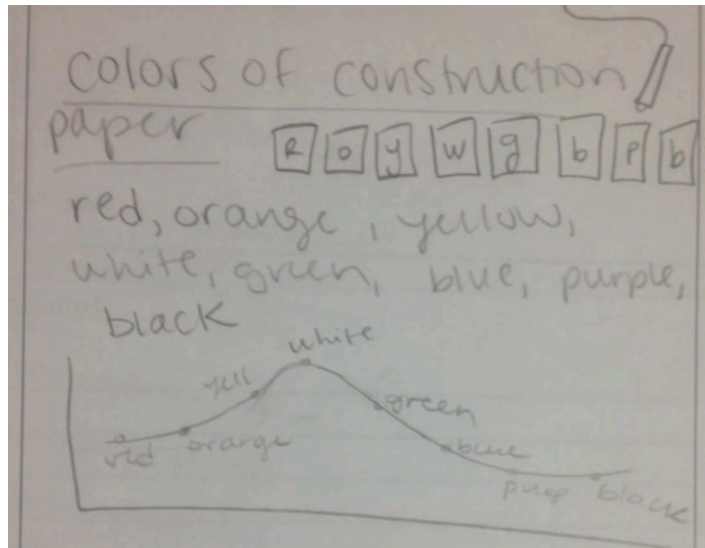 colors of construction
paper
R o y w g b p b
red, orange, yellow,
white, green, blue, purple,
black
white
yell
green
red orange
blue
purp black